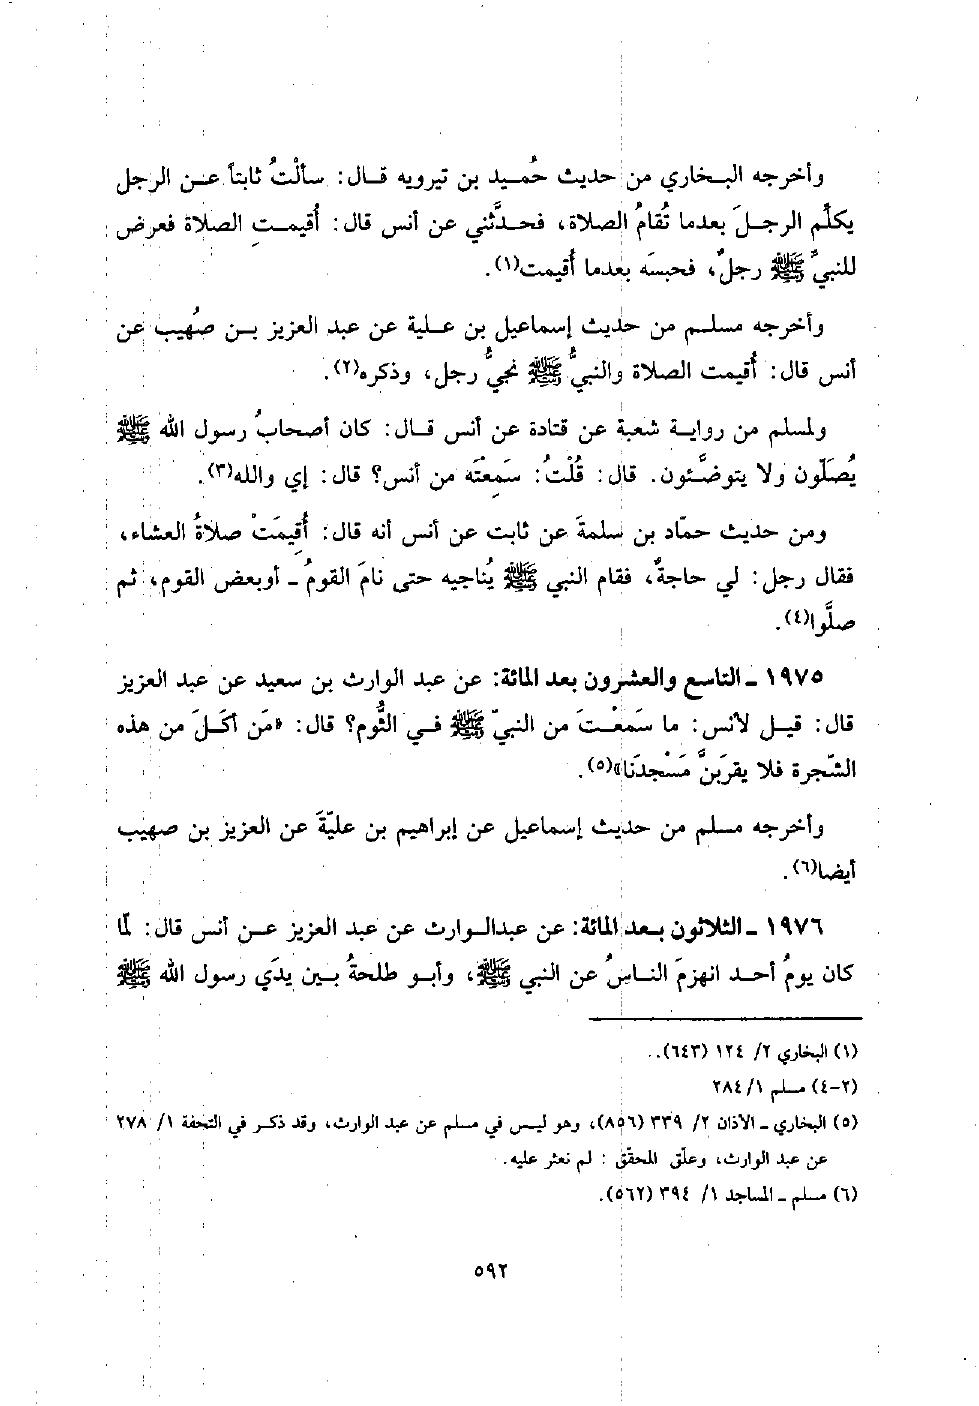 وأخرجه البخاري من حديث حُميد بن تيرويه قال: سألْتُ ثابتاً عن الرجل
يكلِّم الرجلَ بعدما تُقامُ الصلاة، فحدَّثني عن أنس قال: أُقيمتِ الصلاة فعرض
للنبيِّ ﷺ رجلٌ، فحبسَه بعدما أُقيمت(١).
وأخرجه مسلم من حديث إسماعيل بن علية عن عبد العزيز بن صُهيب عن
أنس قال: أُقيمت الصلاة والنبيُّ ﷺ نجيُّ رجل، وذكره(٢).
ولمسلم من رواية شعبة عن قتادة عن أنس قال: كان أصحابُ رسول الله ﷺ
يُصَلّون ولا يتوضَّئون. قال: قُلْتُ: سَمِعْتَه من أنس؟ قال: إي والله(٣).
ومن حديث حمّاد بن سلمةَ عن ثابت عن أنس أنه قال: أُقِيمَتْ صلاةُ العشاء،
فقال رجل: لي حاجةٌ، فقام النبي ﷺ يُناجيه حتى نامَ القومُ ـ أوبعض القوم، ثم
صلَّوا(٤).
١٩٧٥ ـ التاسع والعشرون بعد المائة: عن عبد الوارث بن سعيد عن عبد العزيز
قال: قيل لأنس: ما سَمِعْتَ من النبيّ ﷺ في الثُّوم؟ قال: «مَن أكَلَ من هذه
الشّجرة فلا يقرَبنَّ مَسْجدَنا»(٥).
وأخرجه مسلم من حديث إسماعيل عن إبراهيم بن عليّةَ عن العزيز بن صهيب
أيضا(٦).
١٩٧٦ ـ الثلاثون بعد المائة: عن عبدالوارث عن عبد العزيز عن أنس قال: لمّا
كان يومُ أحد انهزمَ الناسُ عن النبي ﷺ، وأبو طلحةُ بين يدَي رسول الله ﷺ
(١) البخاري ٢/ ١٢٤ (٦٤٣)..
(٢-٤) مسلم ١/ ٢٨٤
(٥) البخاري ـ الأذان ٢/ ٣٣٩ (٨٥٦)، وهو ليس في مسلم عن عبد الوارث، وقد ذكر في التحفة ١/ ٢٧٨
عن عبد الوارث، وعلّق المحقّق : لم نعثر عليه.
(٦) مسلم ـ المساجد ١/ ٣٩٤ (٥٦٢).
٥٩٢